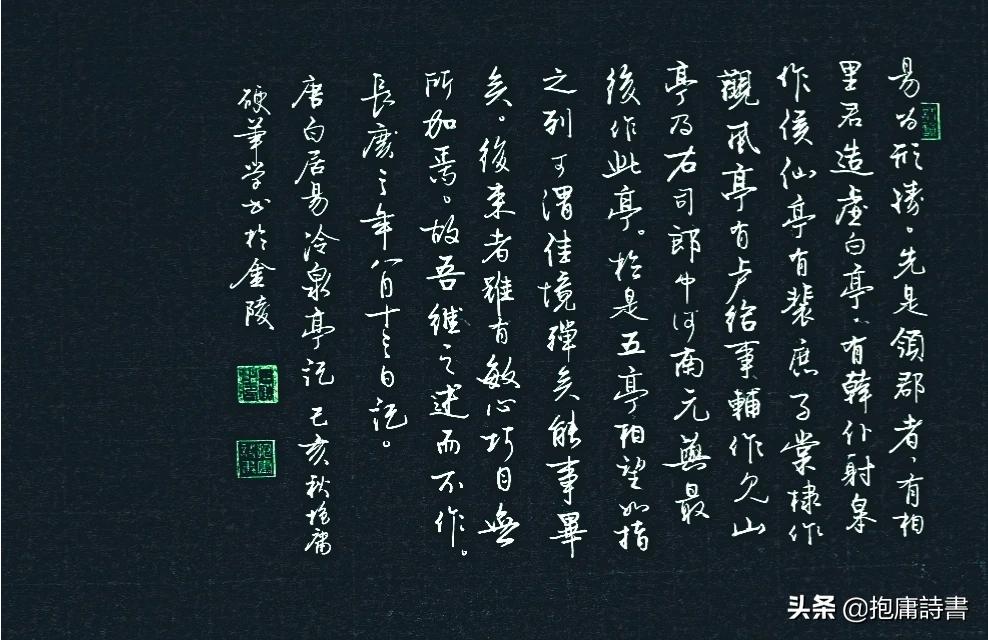 易为形勝。先是領郡者，有相
里君造虚白亭，有韓仆射皋
作候仙亭有裴庶子棠棣作
觀風亭有卢给事輔作见山
亭乃右司郎中河南元藇最
後作此亭。於是五亭相望如指
之列可謂佳境殫矣能事畢
矣。後来者雖有敏心巧目無
所加焉。故吾继之述而不作。
長慶三年八月十三日記。
唐白居易冷泉亭记 己亥秋抱庸
硬筆学书於金陵
头条 @抱庸詩書